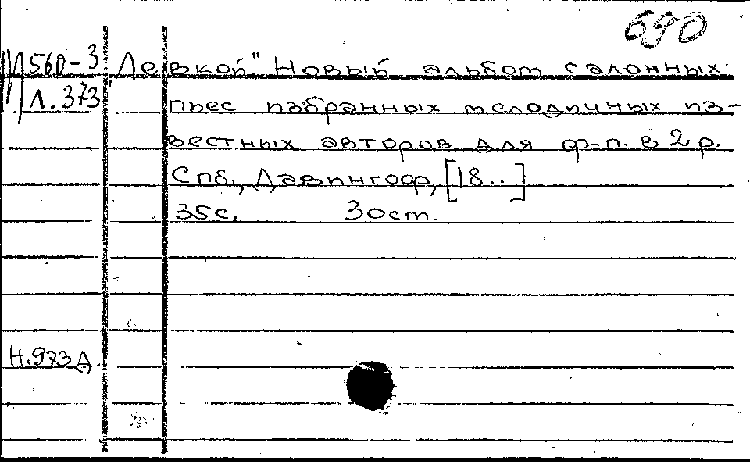 690
П56р-3 „Левкой" Новый альбом салонных
Л.373 пьес избранных мелодичных из-
вестных авторов для ф-п. в 2 р.
Спб., Давингоф, [18..]
35с. 3 ост.
Н.973А